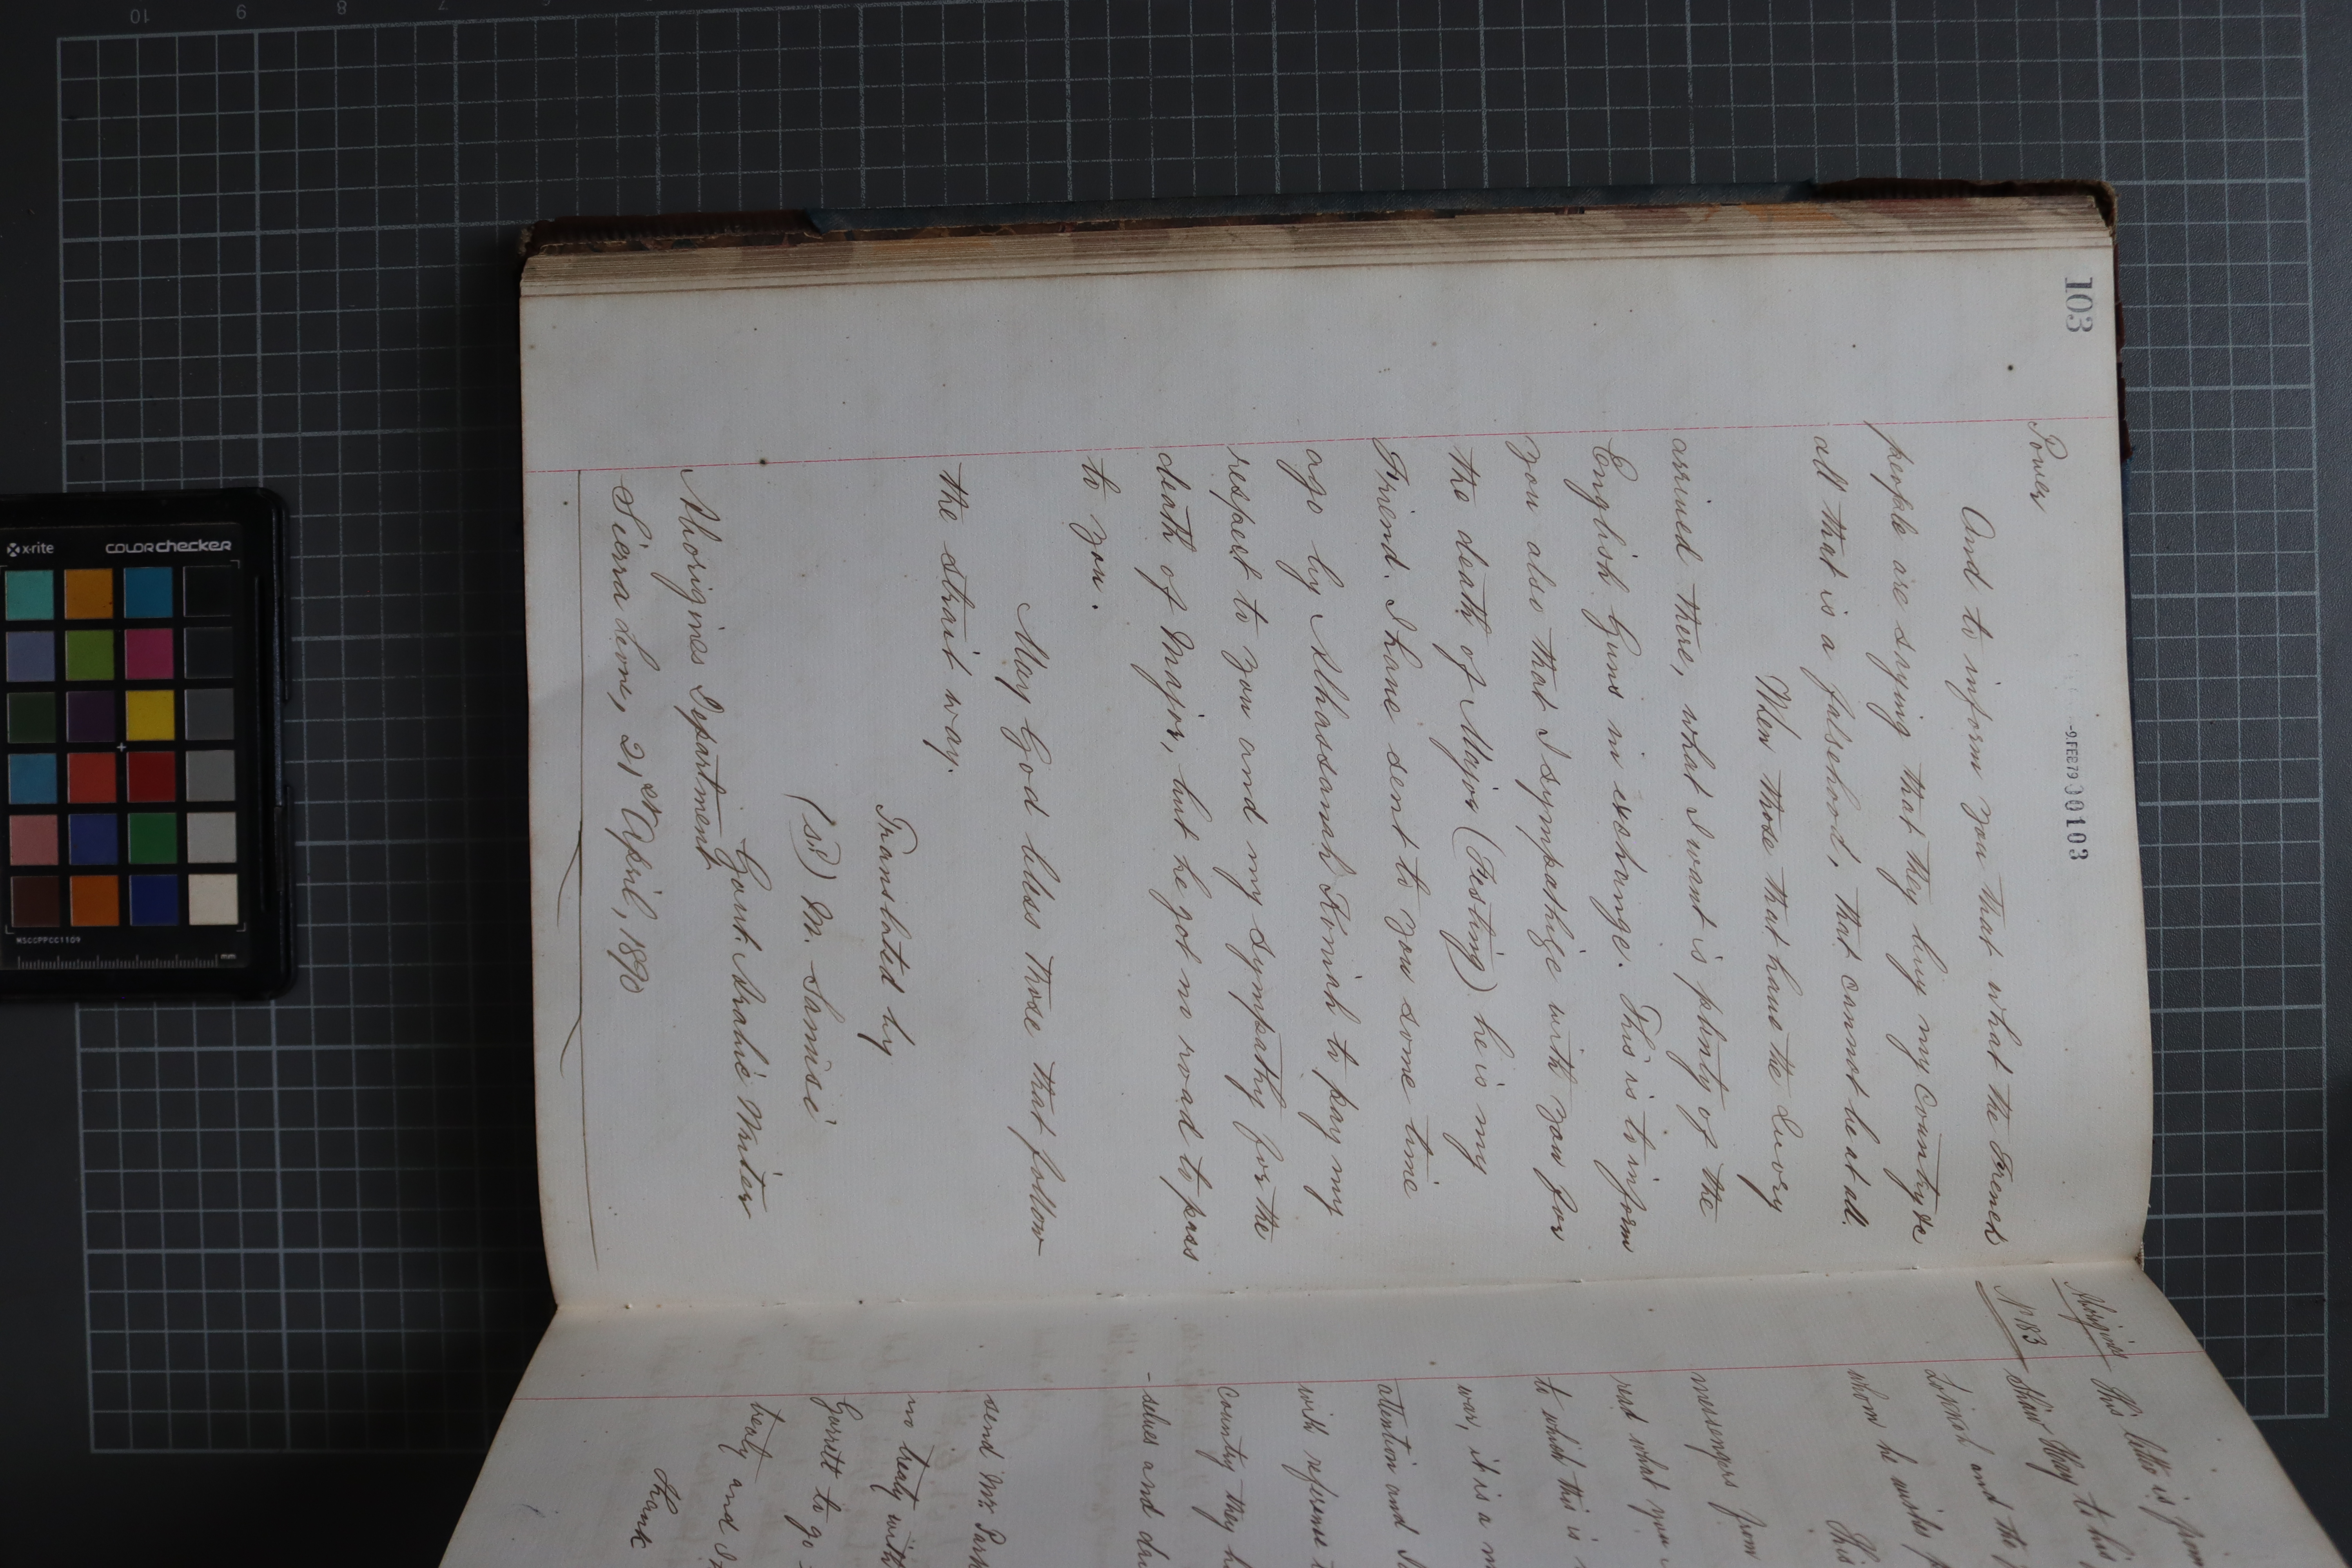 103
-9.FEB79 000103
Power
And to inform you that what the French
people are saying that they buy my Country &c
all that is a falsehood, that cannot be at all.
When those that have the Ivory
arrived there, what I want is plenty of the
English Guns in exchange. This is to inform
you also that I sympathize with you for
the death of Major (Festing) he is my
Friend. I have sent to you some time
ago by Alhassanah Koniah to pay my
respect to you and my sympathy for the
death of Major, but he got no road to pass
to you.
May God bless those that follow
the strait way.
Translated by
(sd) M. Sanusi
Govt. Arabic Writer
Aborigines Department
Sierra Leone, 21st April, 1890
Aborigines
No 83
This letter is from
to his
and the
whom he wishes
This
messengers from
rest what you
to which this is
war, it is a
attention and
with reference
Country they
-selves and
send Mr. Park
no treaty with
Garrett to go
treaty and
Thank
x-rite
colorchecker
MSCCPPCC1109
mm
10 9 8 7